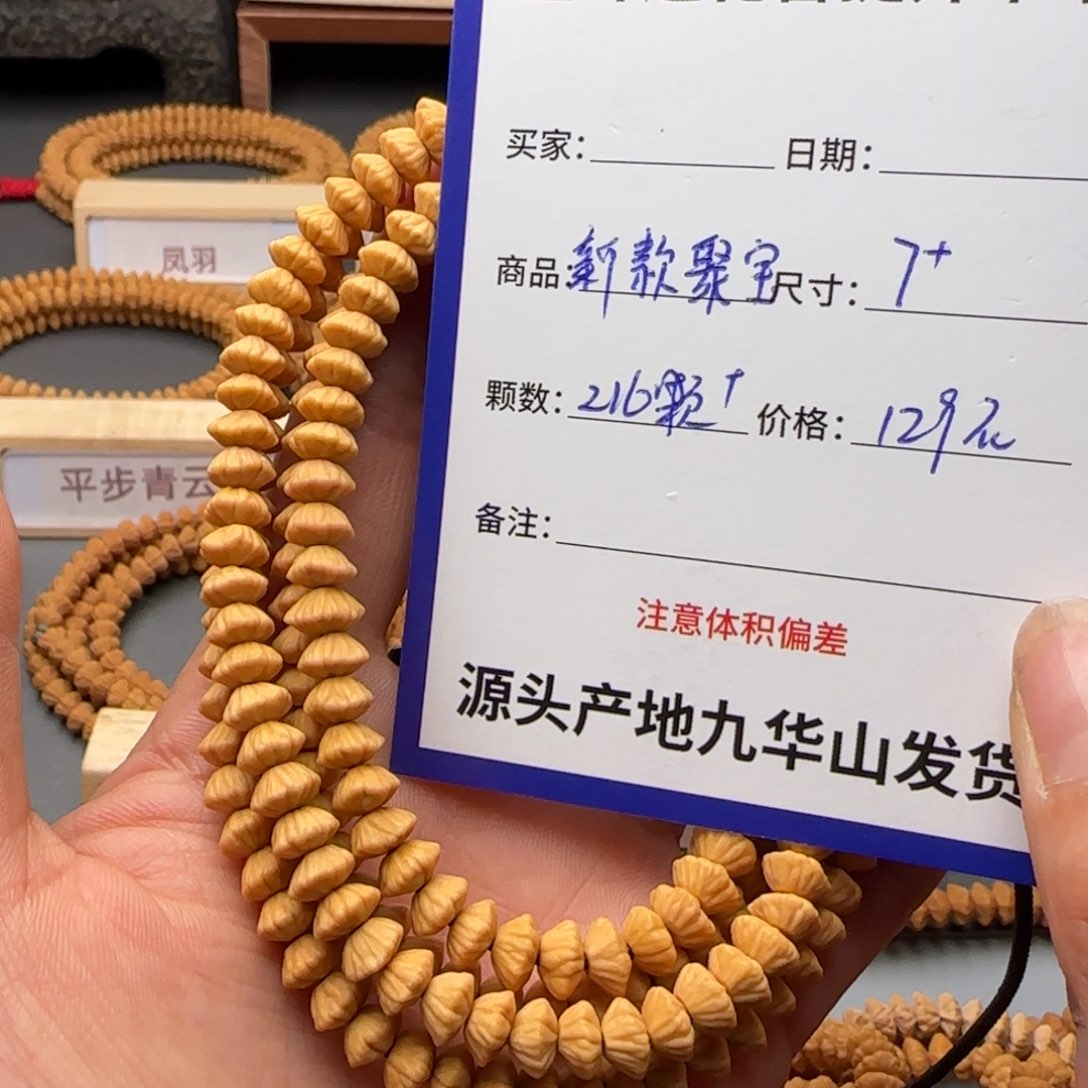 买家： 日期：
商品：新款聚宝 尺寸：7+
颗数：216颗+ 价格：129元
备注：
注意体积偏差
源头产地九华山发货
凤羽
平步青云